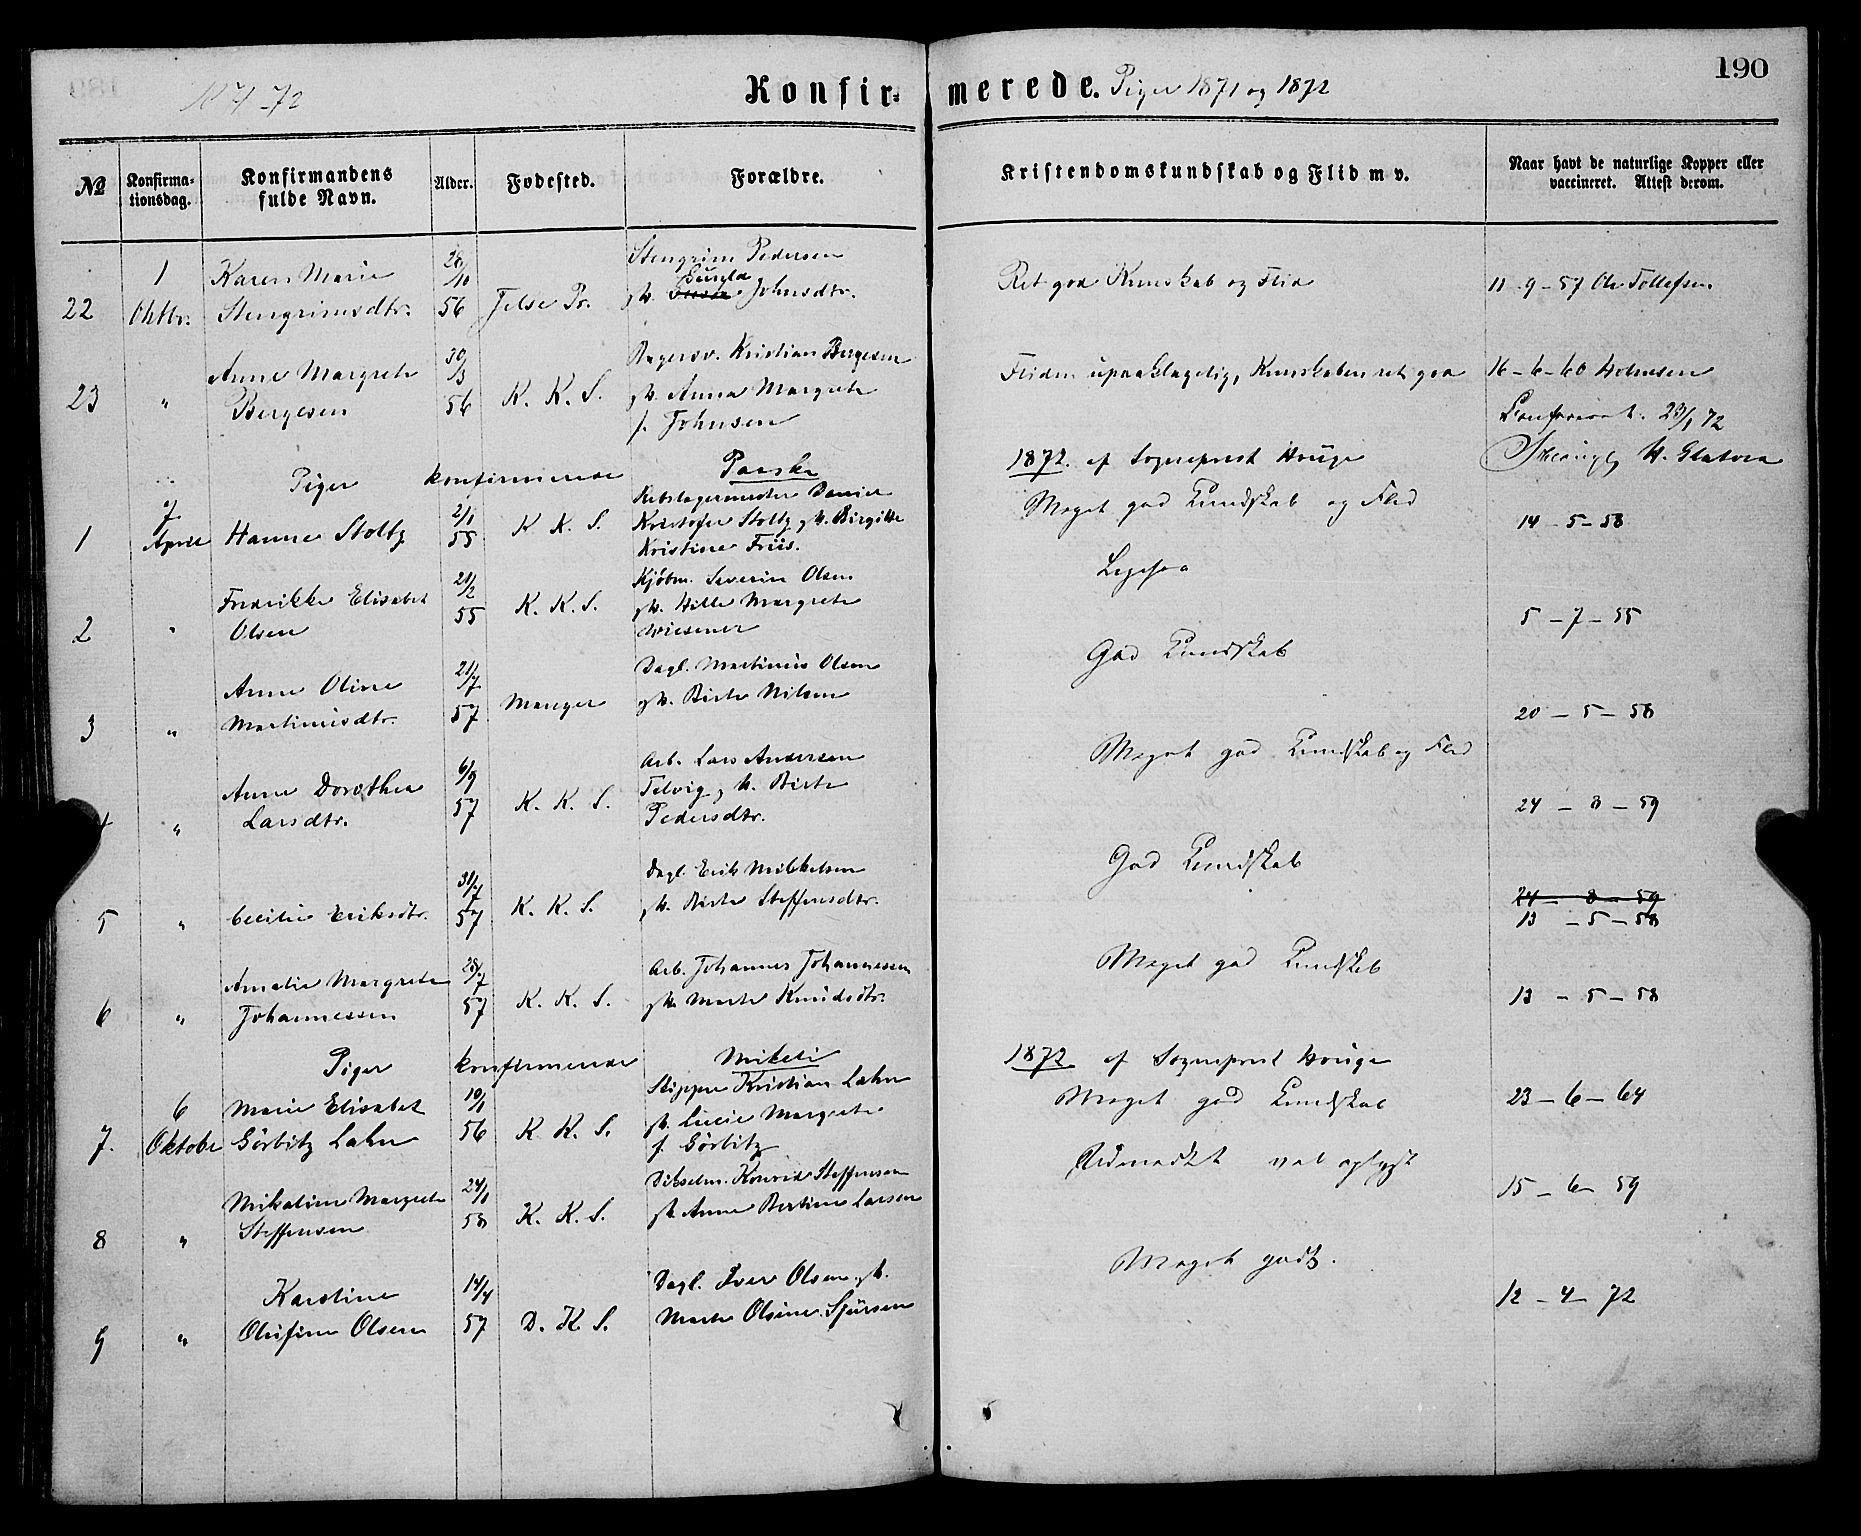 190
1871-72
Konfir- merede. Piger 1871 og 1872
№ Konfirma- tionsdag. Konfirmandens fulde Navn. Alder. Fødested. Forældre. Kristendomskundskab og Flid m v. Naar havt de naturlige Kopper eller vaccineret. Attest derom.
22 1 Oktbr. Karen Marie Stengrimsdtr. 28/10 56 Jelse Pr. Stengrim Pedersen
Gunla
gh. Johnsdtr. Ret god Kunskab og Flid 11-9-57 Ole Tollefsen
23 " Anne Margrete Bergesen 30/3 56 K. K. S. Kristian Bergesen
gh. Anna Margrete
f. Johnsen Fliden upaaklagelig, Kunskaben ret god 16-6-60 Holmesen
Confereret. 23/1 72
H. Glatved
Piger konfirmerede Paaske 1872. af Sogneprest Houge
1 7 April Hanne Stoltz 2/1 55 K K. S. Rebslagermester Daniel
Kristofer Stoltz gh. Birgitte
Kristine Friis. Meget god Kundskab og Flid 14-5-58
2 " Fredrikke Elisabet Olsen 21/2 55 K. K. S. Kjøbm. Severin Olsen
gh. Hille Margrete
Wiesener Ligesaa 5-7-55
3 " Anne Oline Martinusdtr. 21/7 57 Manger Dagl. Martinus Olsen
gh. Birte Nilsen God Kundskab 20-5-58
4 " Anne Dorothea Larsdtr. 6/9 57 K. K. S. Arb. Lars Andersen
gh. Birte
Pedersdtr. Meget god Kundskab og Flid 24-8-59
5 " Cecilie Eriksdtr. 31/7 57 K. K. S. Dagl. Erik Mikkelsen
gh. Birte Steffensdtr. God Kundskab 24-8-59
13-5-58
6 " Amalie Margrete Johannessen 28/7 57 K. K. S. Arb. Johannes Johannessen
gh. Marte Knudsdtr. Meget god Kundskab 13-5-58
Piger konfirmerede Mikeli 1872 af Sogneprest Houge
7. 6 Oktober Marie Elisabet Görbitz Lahn 10/1 56 K. K. S. Skipper Kristian Lahn
gh. Lucie Margrete
f. Görbitz Meget god Kundskab 23-6-64
8 " Mikaline Margrete Steffensen 24/1 58 K. K. S. Konrad Steffensen
gh. Anne Bertine Larsen Udmerket vel oplyst 15-6-59
9 " Karoline Olufine Olsen 14/4 57 D. K S. Dagl. Iver Olsen gh.
Marte Olsine Sjursen Meget godt. 12-4-72